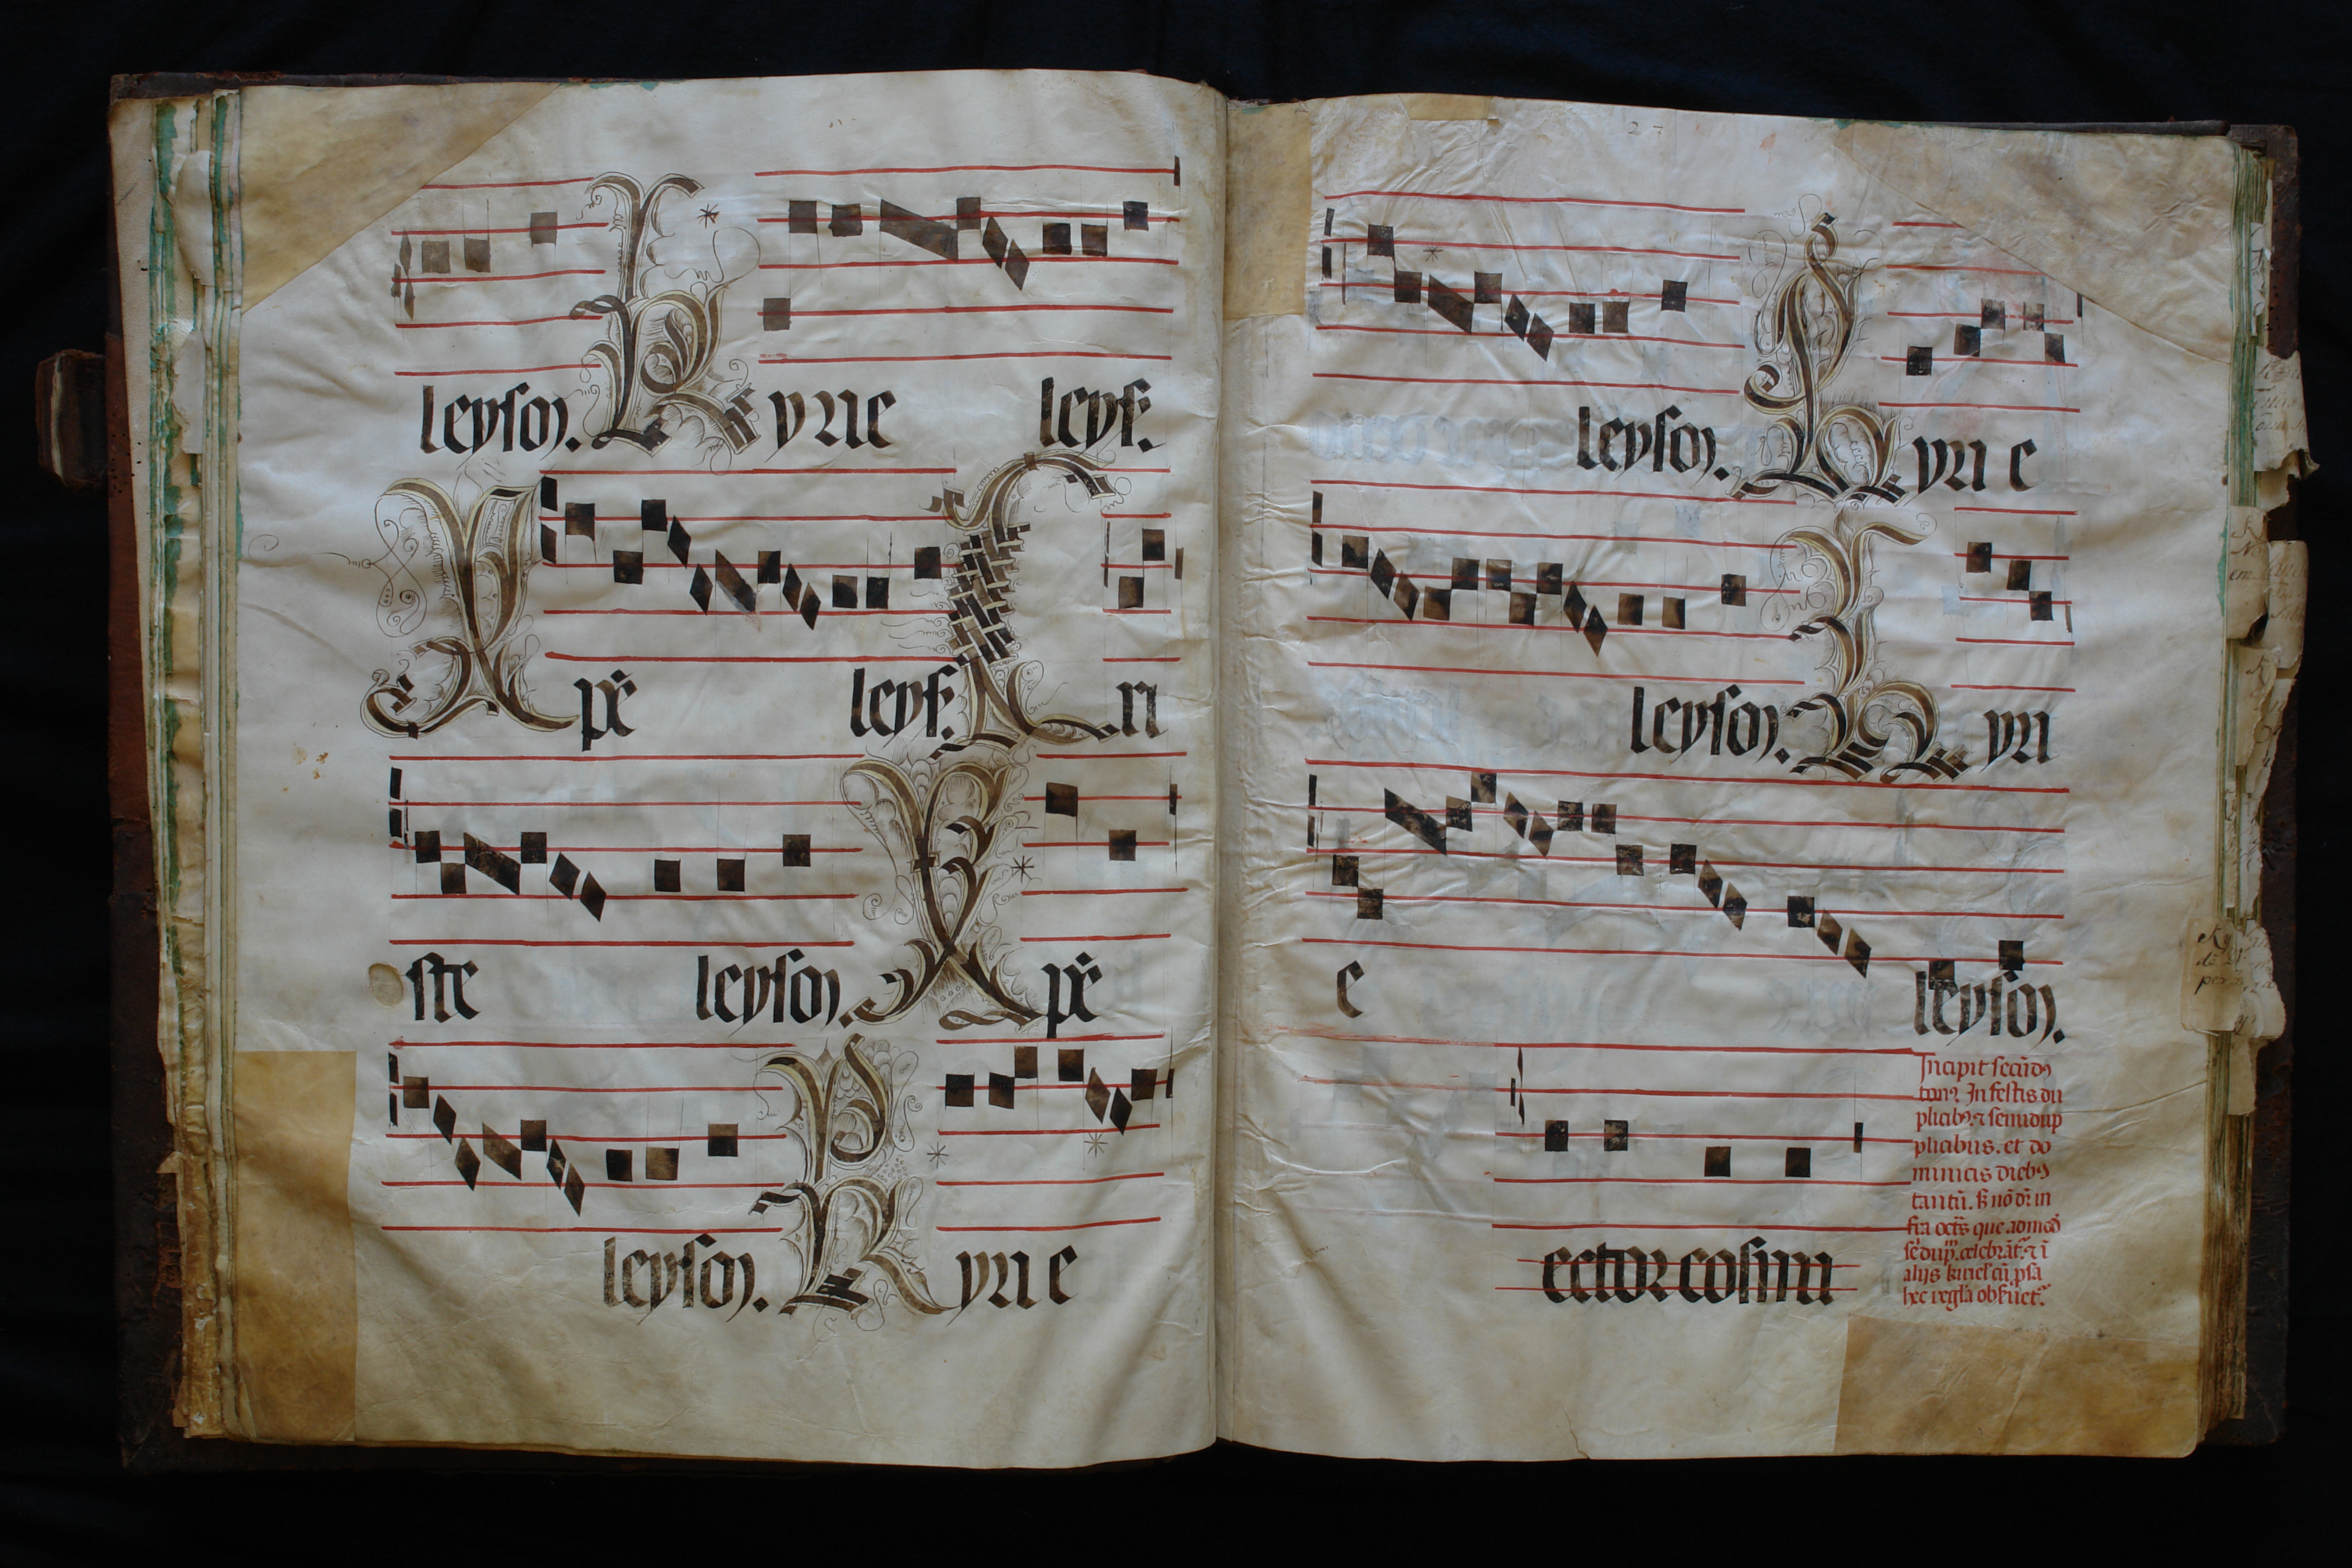 leyson. Kyrie leys.
Xpe leys. Cri
ste leyson. Xpe
leyson. Kyrie
27
leyson. Kyrie
leyson. Kyri
e leyson.
Incipit secūdꝰ
tonꝰ. In festis du
plicibꝰ ⁊ semidup
plicibus. et do
minicis diebꝰ
tantū. nō in
fra octs que
celebrāt ⁊ ī
alijs kiriel cū psa
hec regla obsuet.
ector cosmi